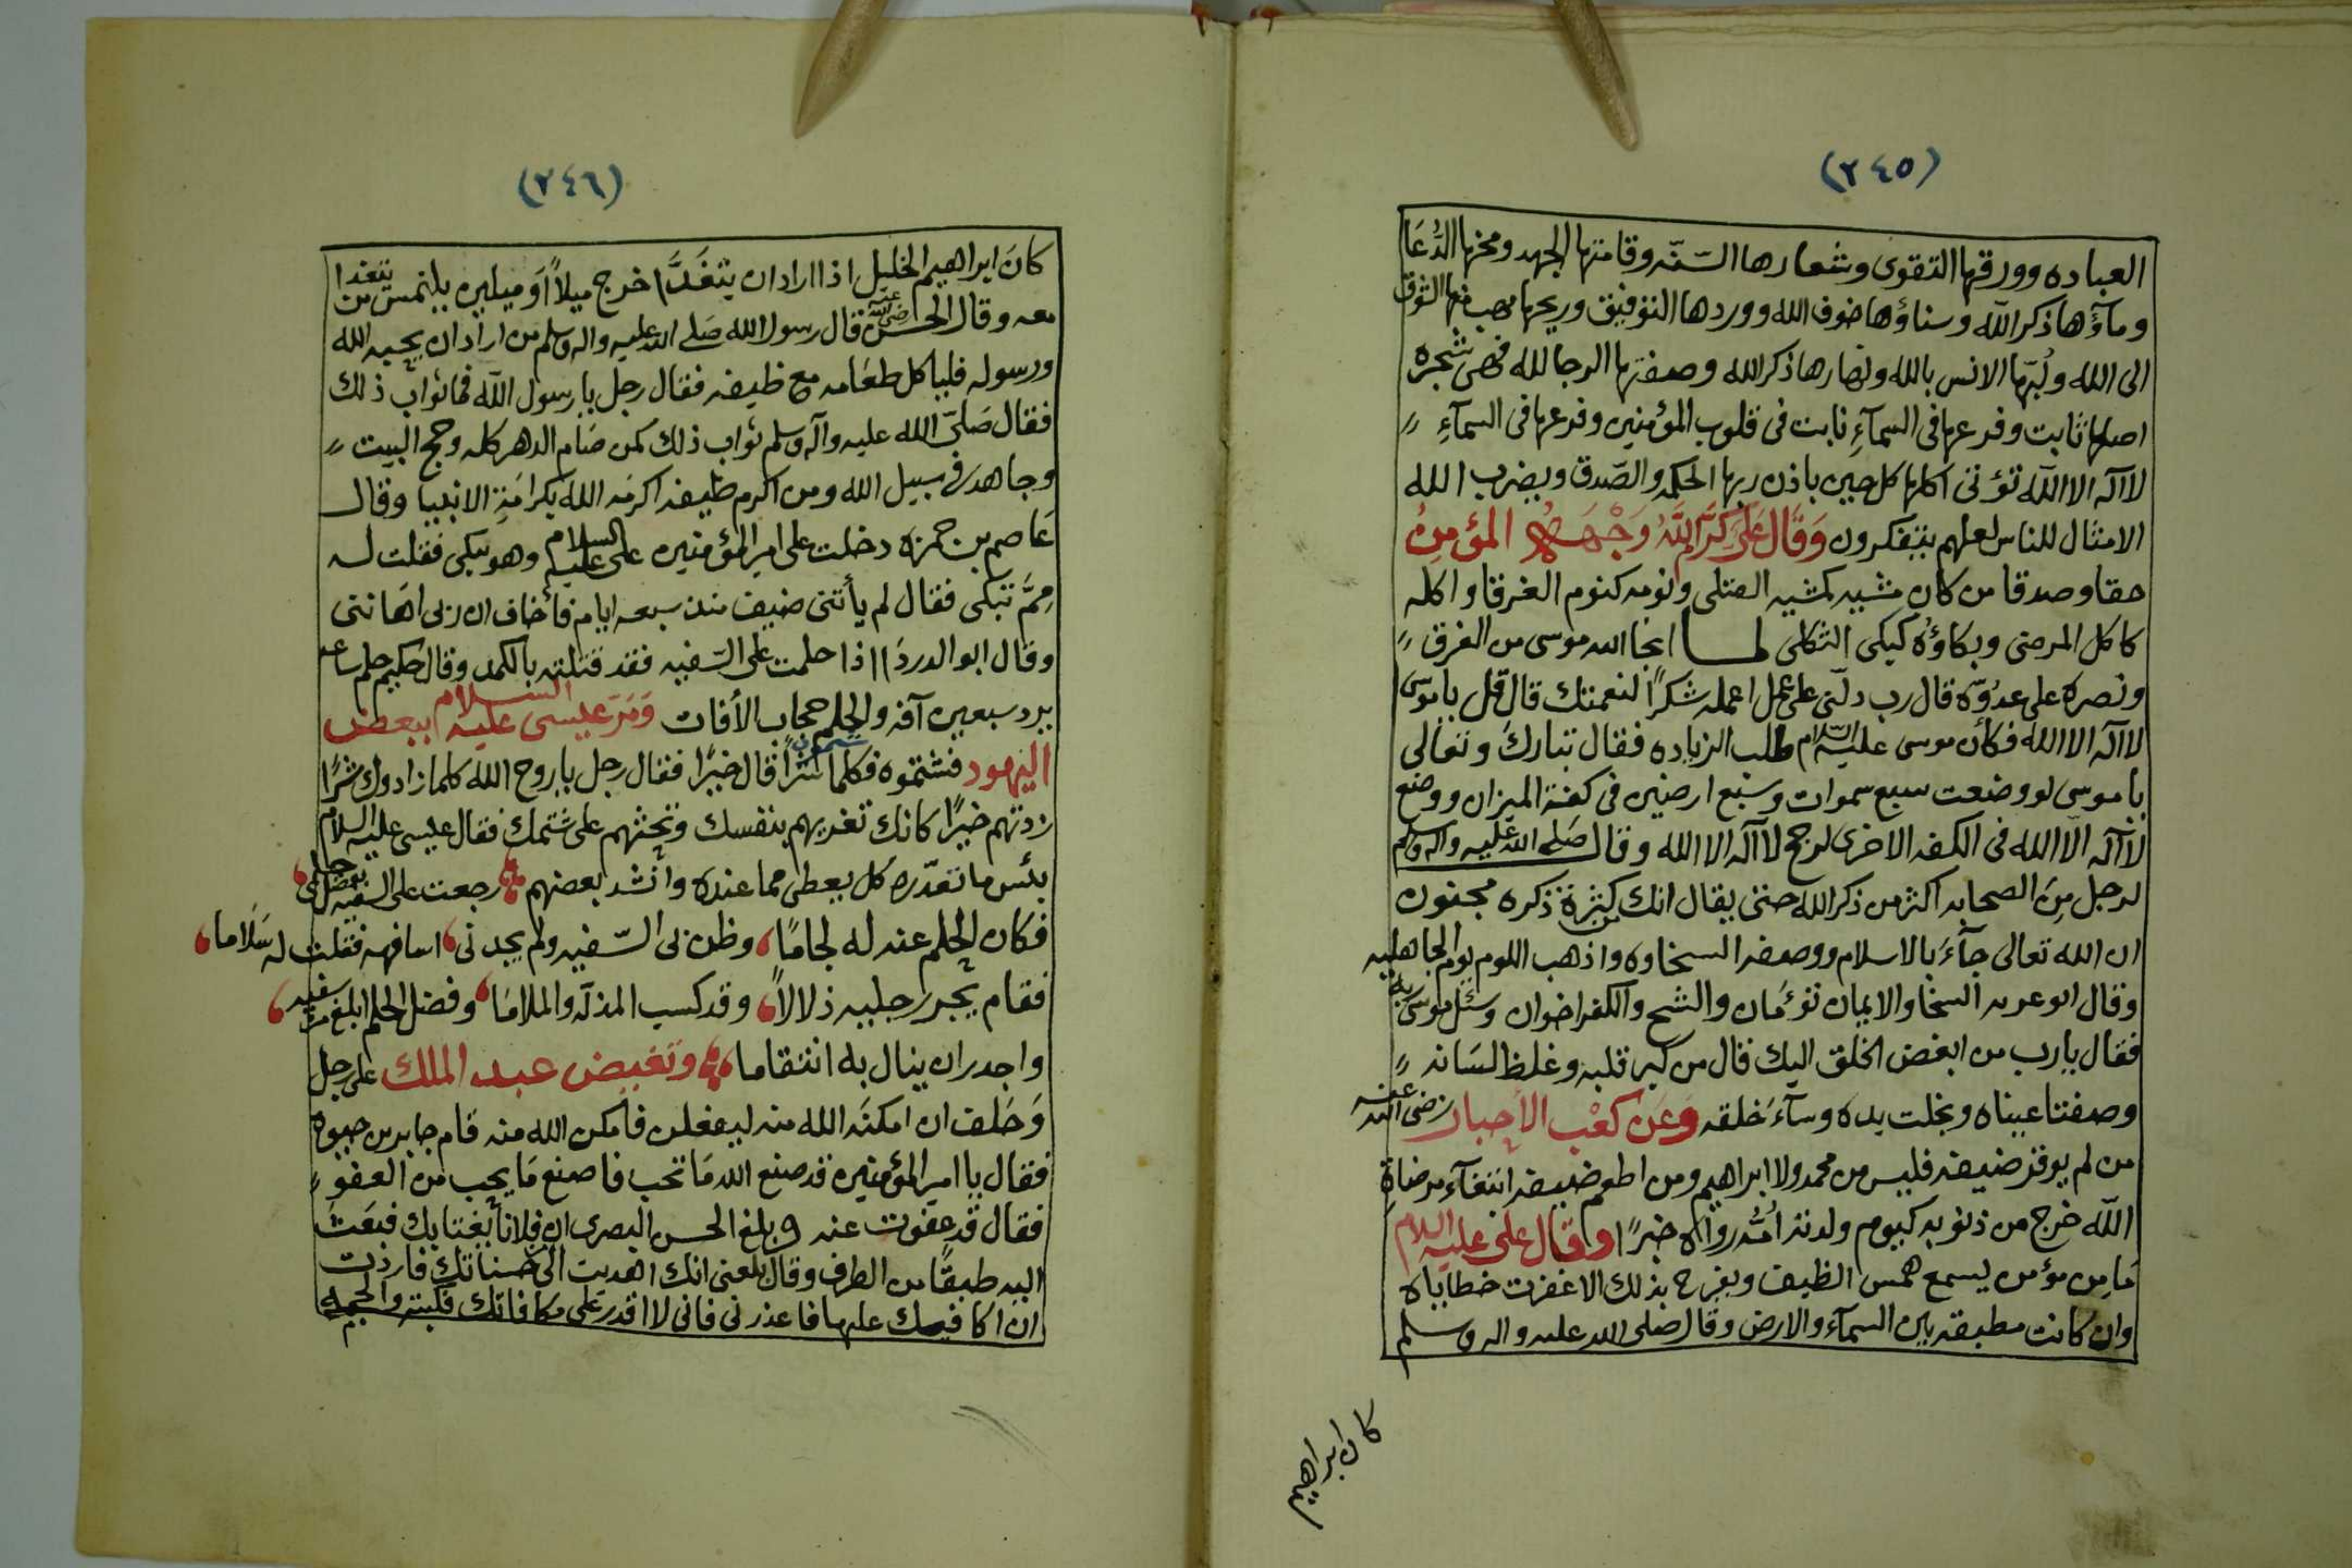 (٢٤٥)
العباده وورقها التقوى وشعارها السّنّه وقامتها الجهد ومخها الدُّعَا
ومآؤها ذكر الله وسناؤها خوف الله ووردها التوفيق وريحها مهب الشوق
الى الله ولُبّها الانس بالله وثمارها ذكر الله وصفتها الرجا لله فهى شجرة
اصلها ثابت وفرعها فى السمآءِ نابت فى قلوب المؤمنين وفرعها فى السمآءِ
لا اله الا الله تؤتى اكلها كل حين باذن ربها الحكمه والصّدق ويضرب الله
الامثال للناس لعلهم يتفكرون وَقَالَ عَلَى كَرَّمَ اللَّهُ وَجْهَهُ المؤمنُ
حقا وصدقا من كان مشيه كمشيه القتلى ونومه كنوم الغرقا واكله
كاكل المرضى وبكاؤه كبكى الثكلى لما انجا الله موسى من الغرق
ونصره على عدُوّه قال رب دلّنى على عمل اعمله شكرًا لنعمتك قال قل يا موسى
لا اله الا الله فكأن موسى عليه السّلام طلب الزياده فقال تبارك وتعالى
يا موسى لو وضعت سبع سموات وسبع ارضين فى كفة الميزان ووضع
لا اله الا الله فى الكفه الاخرى لرجح لا اله الا الله وقال صَلى الله عليه واله وسلم
لرجل مِن الصحابه اكثر من ذكر الله حتى يقال انك من كثرة ذكره مجنون
ان الله تعالى جآءَ بالاسلام ووصفه السخاوه واذهب اللوم يوم الجاهليه
وقال ابو السخا والايمان تؤمان والشح والكفر اخوان وسئل موسى ربه
فقال يا رب من ابغض الخلق اليك قال من كبر قلبه وغلظ لسانه
وصفتا عيناه وبخلت يده وسآءَ خلقه وَعَن كعْب الأحبار رضى الله عنه
من لم يوقر ضيفه فليس من محمد ولا ابراهيم ومن اطعم ضيفه ابتغآء مرضاةِ
اللّه خرج من ذنوبه كيوم ولدته اُمُّه رواه خبرًا وقال على عليه السلام
مَا مِن مؤمن يسمع همس الظيف ويفرح بذلك الا غفرت خطاياه
وان كانت مطبقه بين السمآء والارض وقال صلى الله عليه واله وسلم
كان ابراهيم
(٢٤٦)
كانَ ابراهيم الخليل اذا اراد ان يتغَدَّا خرج ميلاً اَو ميلين يلتمس من يتغدا
معه وقال الحسن رضى الله عنه قال رسول الله صَلى الله عليه واله وسلم من اراد ان يحبه الله
ورسوله فليا كل طعَامه مع ظيفه فقال رجل يا رسول الله فما ثواب ذلك
فقال صَلّى الله عليه وآله وسلم ثواب ذلك كمن صَام الدهر كله وحج البيت
وجاهد فى سبيل الله ومن اكرم ظيفه اكرمَه الله بكرامَةِ الانبيا وقال
عَاصم بن حمزه دخلت على امير المؤمنين على عليه السلام وهو يبكى فقلت له
مِمَّ تبكى فقال لم يأتنى ضيف منذ سبعه ايام فأخاف ان ربى اهَاننى
وقال ابو الدردَاا اذا حلمت على السّفيه فقد قتلته بالكمد وقال حكيم حلم ساعه
يرد سبعين آفه والحلم حجاب الأفات وَمَرّ عليسى عليه السلام ببعض
اليهود فشتموه فكلما شتموه شرًّا قال خيرًا فقال رجل يا روح الله كلما زادوك شرًّا
زدتهم خيرًا كانك تغريهم بنفسك وتحثهم على شتمك فقال عليسى عليه السلام
بئس ما تعدّره كل يعطى مما عنده وانشد بعضهم رجعت على السفيه بفضل حلمى
فكان الحلم عنه له لجامًا وظن بى السّفيه ولم يجدنى اسافهه فقلت له سَلاَما
فقام يجر رجليه ذلالاً وقد كسب المذلّه والملامَا وفضل الحلم ابلغ من سفيه
واجدر ان ينال به انتقاما وتغيض عبد الملك على رجل
وَحَلف ان امكنَه الله منه ليفعلن فامكن الله منه قَام جابر بن حيوة
فقال يا امير المؤمنين قد صنع الله مَا تحب فا صنع مَا يحب من العفو
فقال قد عفوت عنه وبلغ الحسن البصرى ان فلانًا يغتابك فبعَث
اليه طبقًا من الطرف وقال بلغنى انك اهديت الىّ حسناتك فاردت
ان اكافيك عليها فاعذرنى فانى لا اقدر على مكافاتك